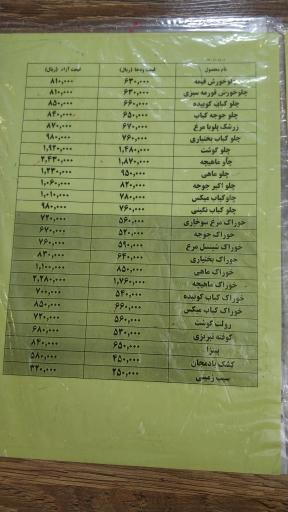 نام محصول قیمت ودها (ریال) قیمت آزاد (ریال)
چلوخورش قیمه ۶۳۰,۰۰۰ ۸۱۰,۰۰۰
چلوخورش قورمه سبزی ۶۳۰,۰۰۰ ۸۱۰,۰۰۰
چلو کباب کوبیده ۶۶۰,۰۰۰ ۸۵۰,۰۰۰
چلو جوجه کباب ۶۵۰,۰۰۰ ۸۴۰,۰۰۰
زرشک پلوبا مرغ ۶۷۰,۰۰۰ ۸۷۰,۰۰۰
چلو کباب بختیاری ۷۶۰,۰۰۰ ۹۸۰,۰۰۰
چلو گوشت ۱,۴۸۰,۰۰۰ ۱,۹۲۰,۰۰۰
چلو ماهیچه ۱,۸۷۰,۰۰۰ ۲,۴۳۰,۰۰۰
چلو ماهی ۹۵۰,۰۰۰ ۱,۲۳۰,۰۰۰
چلو اکبر جوجه ۸۲۰,۰۰۰ ۱,۰۶۰,۰۰۰
چلوکباب میکس ۷۸۰,۰۰۰ ۱,۰۱۰,۰۰۰
چلو کباب نگینی ۷۶۰,۰۰۰ ۹۸۰,۰۰۰
خوراک مرغ سوخاری ۵۶۰,۰۰۰ ۷۲۰,۰۰۰
خوراک جوجه ۵۲۰,۰۰۰ ۶۷۰,۰۰۰
خوراک شینسل مرغ ۵۹۰,۰۰۰ ۷۶۰,۰۰۰
خوراک بختیاری ۶۴۰,۰۰۰ ۸۳۰,۰۰۰
خوراک ماهی ۸۵۰,۰۰۰ ۱,۱۰۰,۰۰۰
خوراک ماهیچه ۱,۷۶۰,۰۰۰ ۲,۲۸۰,۰۰۰
خوراک کباب کوبیده ۵۴۰,۰۰۰ ۷۰۰,۰۰۰
خوراک کباب میکس ۶۶۰,۰۰۰ ۸۵۰,۰۰۰
رولت گوشت ۵۶۰,۰۰۰ ۷۲۰,۰۰۰
کوفته تبریزی ۵۳۰,۰۰۰ ۶۸۰,۰۰۰
پیتزا ۶۵۰,۰۰۰ ۸۴۰,۰۰۰
کشک بادمجان ۴۵۰,۰۰۰ ۵۸۰,۰۰۰
سیب زمینی ۲۵۰,۰۰۰ ۳۲۰,۰۰۰